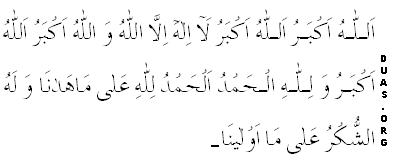 اَللّٰهُ اَكْبَرُ اَللّٰهُ اَكْبَرُ لَآ اِلٰهَ اِلَّا اللّٰهُ وَ اللّٰهُ اَكْبَرُ اَللّٰهُ
اَكْبَرُ وَ لِلّٰهِ الْحَمْدُ اَلْحَمْدُ لِلّٰهِ عَلٰى مَاهَدٰنَا وَ لَهُ
الشُّكْرُ عَلٰى مَا اَوْلٰينَا۔
DUAS.ORG